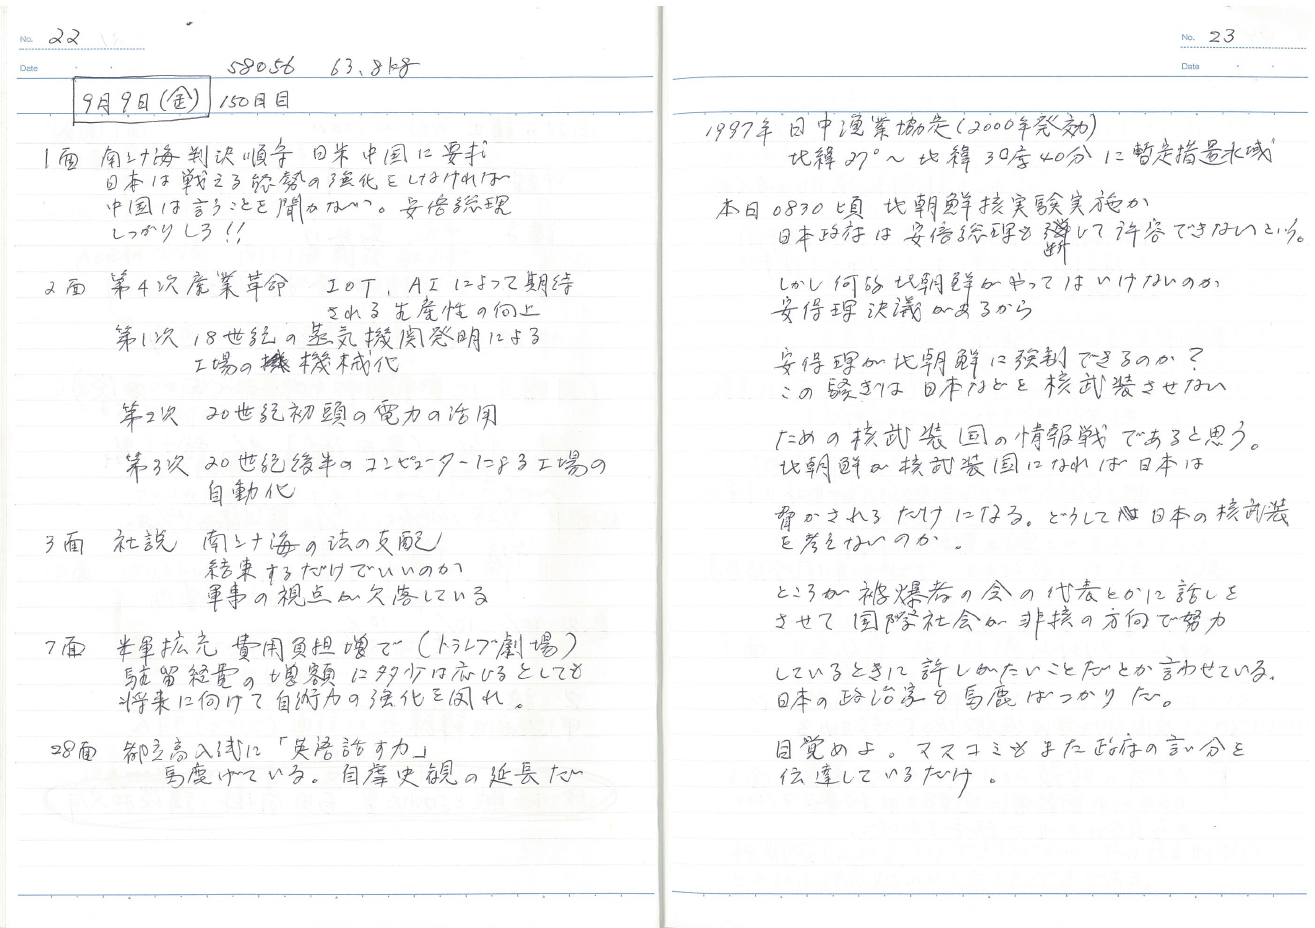 No. 22
58056 63.8kg
Date
9月9日(金) 150日目
1面 南シナ海判決順守 日米中国に要求
日本は戦える態勢の強化をしなければ
中国は言うことを聞かない。安倍総理
しっかりしろ!!
2面 第4次産業革命 IOT、AIによって期待
される生産性の向上
第1次 18世紀の蒸気機関発明による
工場の機械化
第2次 20世紀初頭の電力の活用
第3次 20世紀後半のコンピューターによる工場の
自動化
3面 社説 南シナ海の法の支配
結束するだけでいいのか
軍事の視点が欠落している
7面 米軍拡充 費用負担増で(トランプ劇場)
駐留経費の増額に多少は応じるとしても
将来に向けて自衛力の強化を図れ。
28面 都立高入試に「英語話す力」
馬鹿げている。自虐史観の延長だ
No. 23
Date
1997年 日中漁業協定(2000年発効)
北緯27°~北緯30度40分に暫定措置水域
本日0830頃 北朝鮮核実験実施か
日本政府は安倍総理も断じて許容できないという。
しかし何故北朝鮮がやってはいけないのか
安保理決議があるから
安保理が北朝鮮に強制できるのか?
この騒ぎは日本などを核武装させない
ための核武装国の情報戦であると思う。
北朝鮮が核武装国になれば日本は
脅かされるだけになる。どうして日本の核武装
を考えないのか。
ところが被爆者の会の代表とかに話しを
させて国際社会が非核の方向で努力
しているときに許しがたいことだとか言わせている。
日本の政治家も馬鹿ばっかりだ。
目覚めよ。マスコミもまた政府の言い分を
伝達しているだけ。